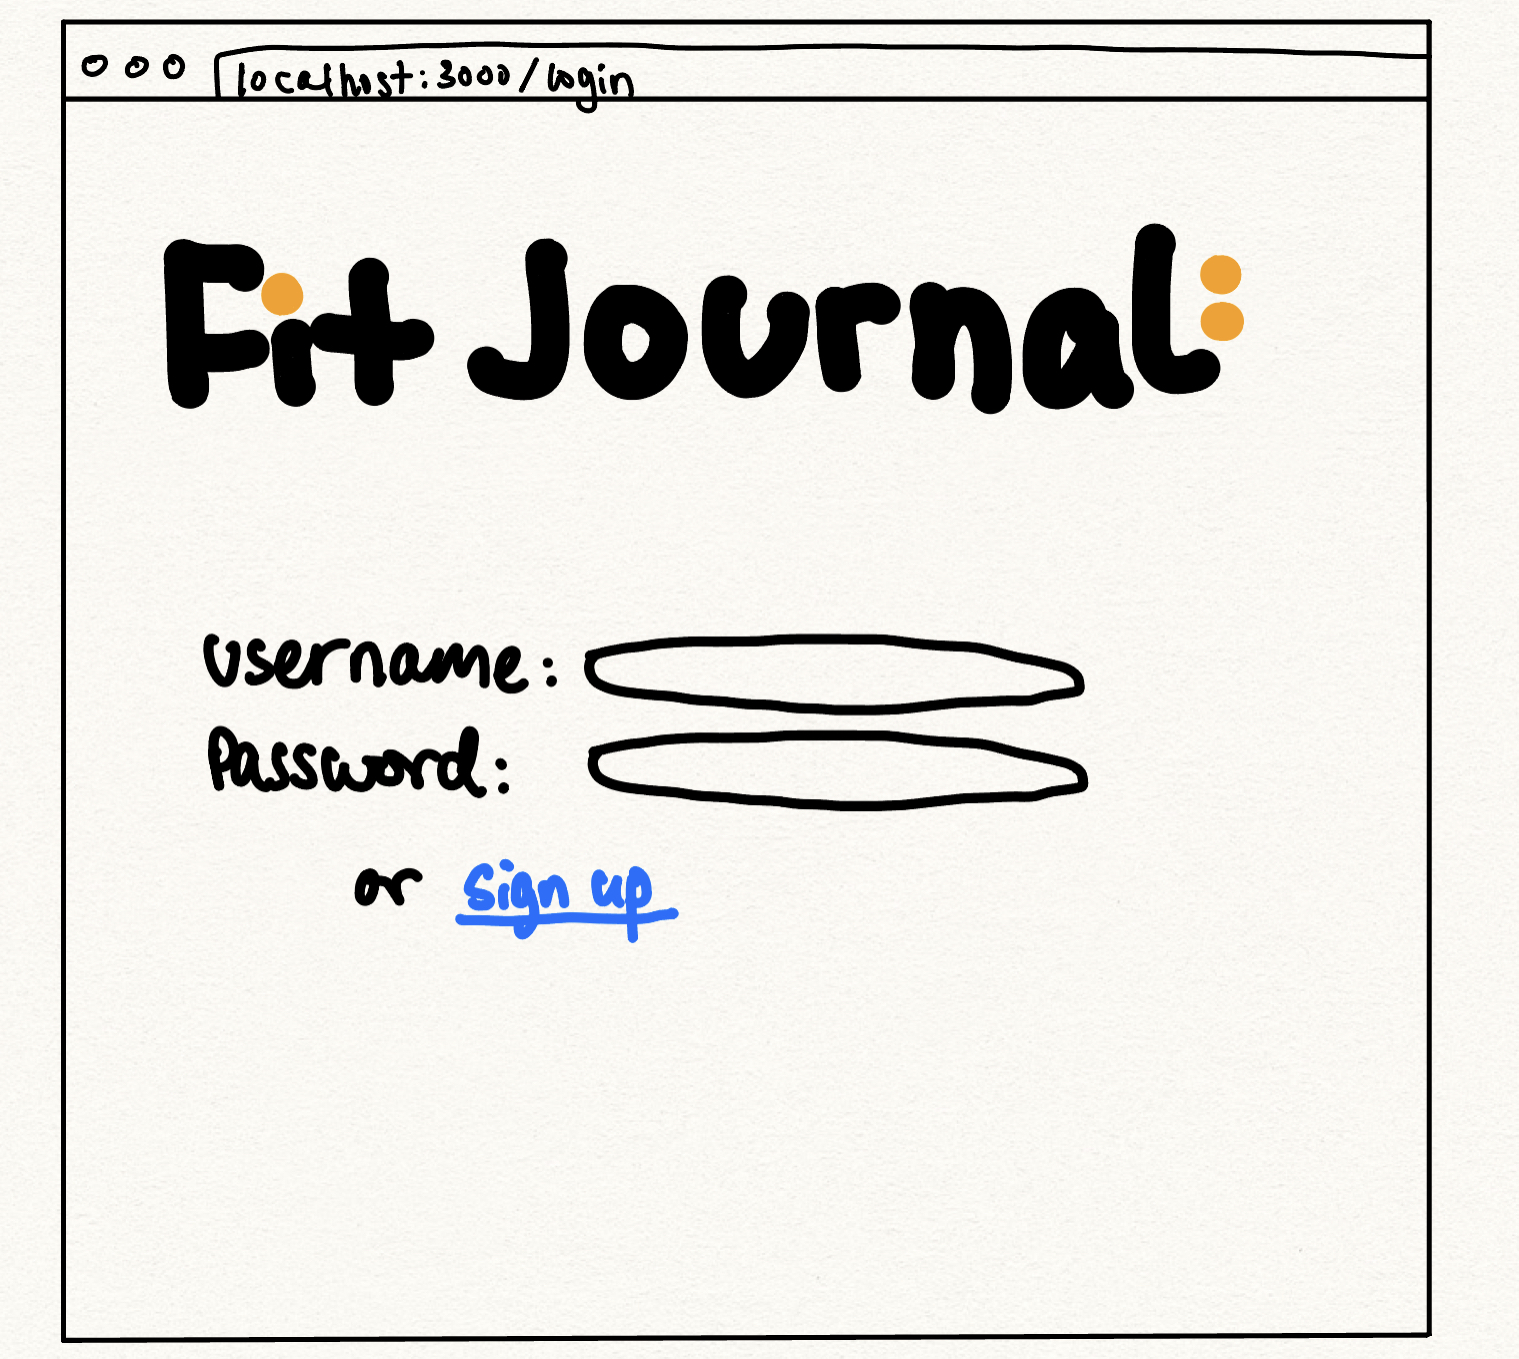 localhost:3000/login
Fit Journal:
Username:
Password:
or sign up